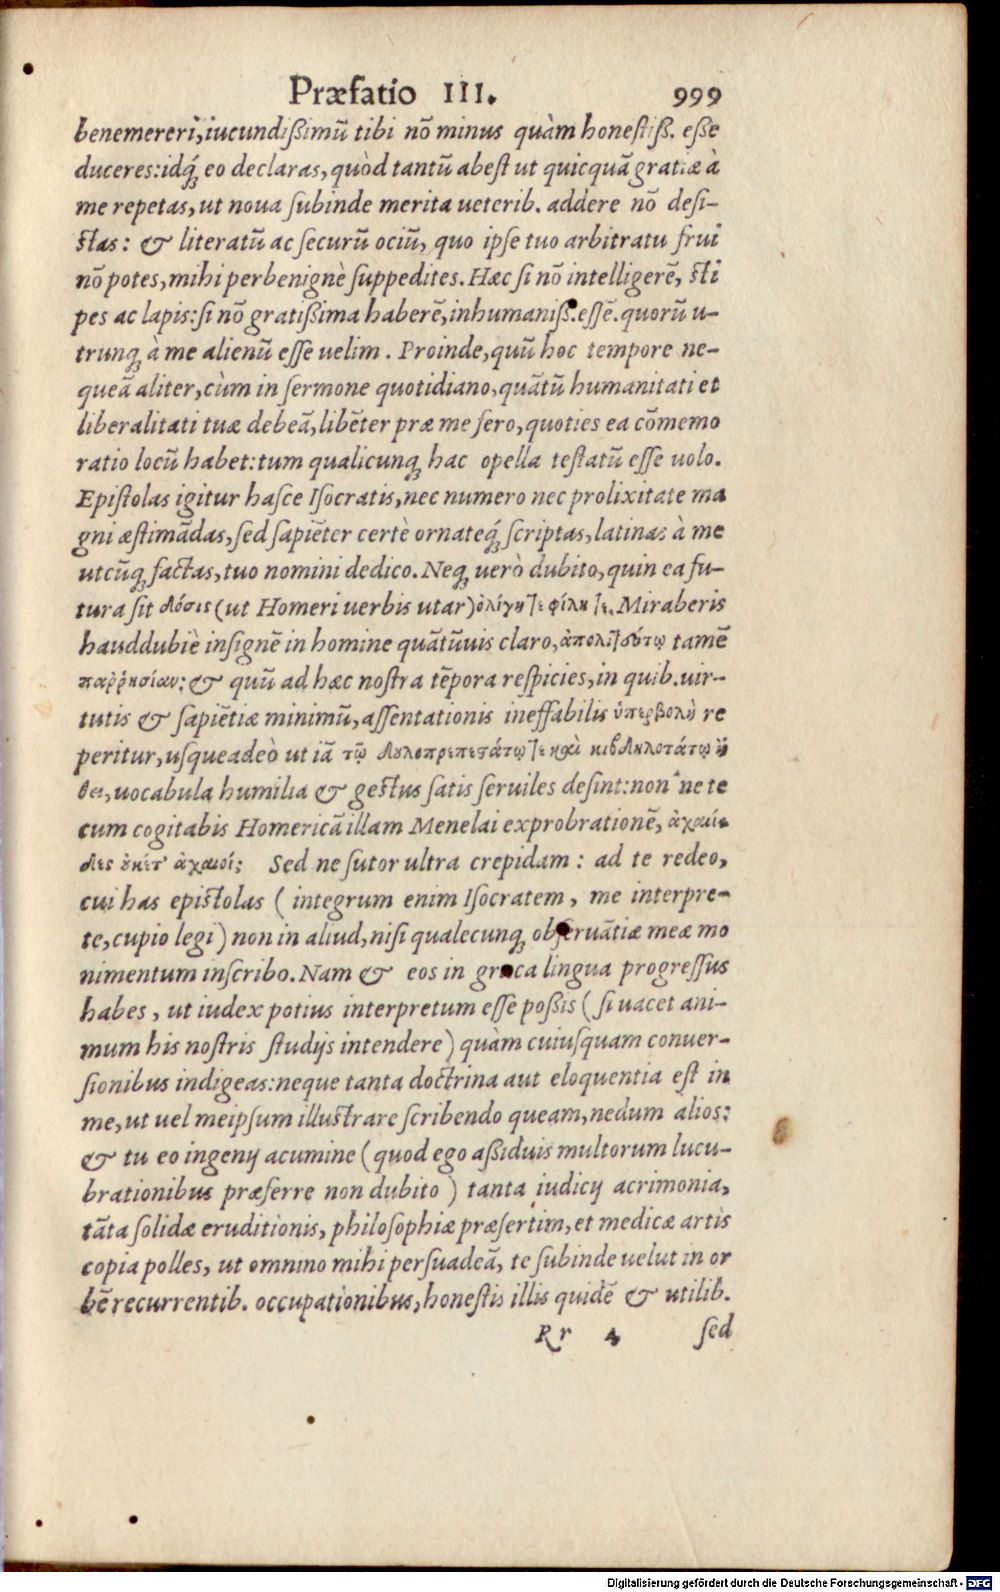 Præfatio III. 999
benemereri, iucundißimū tibi nō minus quàm honestiß. eße
duceres: idq́; eo declaras, quòd tantū abest ut quicquā gratiæ à
me repetas, ut noua subinde merita ueterib. addere nō desi-
stas: & literatū ac securū ociū, quo ipse tuo arbitratu frui
nō potes, mihi perbenignè suppedites. Hæc si nō intelligerē, sti
pes ac lapis: si nō gratißima haberē, inhumaniß. essē. quorū u-
trunq; à me alienū esse uelim. Proinde, quū hoc tempore ne-
queā aliter, cùm in sermone quotidiano, quātū humanitati et
liberalitati tuæ debeā, libēter præ me fero, quoties ea cōmemo
ratio locū habet: tum qualicunq; hac opella testatū esse uolo.
Epistolas igitur hasce Isocratis, nec numero nec prolixitate ma
gni æstimādas, sed sapiēter certè ornateq́; scriptas, latinas à me
utcūq; factas, tuo nomini dedico. Neq; uerò dubito, quin ea fu-
tura sit δόσις (ut Homeri uerbis utar) ὀλίγη τε φίλη τε. Miraberis
hauddubiè insignē in homine quātūuis claro, ἀπολιτεύτῳ tamē
παῤῥησίαν: & quū ad hæc nostra tēpora respicies, in quib. uir-
tutis & sapiētiæ minimū, assentationis ineffabilis ὑπερβολὴ re
peritur, usqueadeò ut iā τῷ δουλοπρεπεστάτῳ τε καὶ κιβδηλοτάτῳ ἤ
θει, uocabula humilia & gestus satis seruiles desint: non ne te
cum cogitabis Homericā illam Menelai exprobrationē, ἀχαιί-
δες οὐκέτ' ἀχαιοί; Sed ne sutor ultra crepidam: ad te redeo,
cui has epistolas (integrum enim Isocratem, me interpre-
te, cupio legi) non in aliud, nisi qualecunq; obseruātiæ meæ mo
nimentum inscribo. Nam & eos in græca lingua progressus
habes, ut iudex potius interpretum esse poßis (si uacet ani-
mum his nostris studijs intendere) quàm cuiusquam conuer-
sionibus indigeas: neque tanta doctrina aut eloquentia est in
me, ut uel meipsum illustrare scribendo queam, nedum alios:
& tu eo ingenij acumine (quod ego aßiduis multorum lucu-
brationibus præferre non dubito) tanta iudicij acrimonia,
tāta solidæ eruditionis, philosophiæ præsertim, et medicæ artis
copia polles, ut omnino mihi persuadeā, te subinde uelut in or
bē recurrentib. occupationibus, honestis illis quidē & utilib.
Rr 4 sed
Digitalisierung gefördert durch die Deutsche Forschungsgemeinschaft - DFG